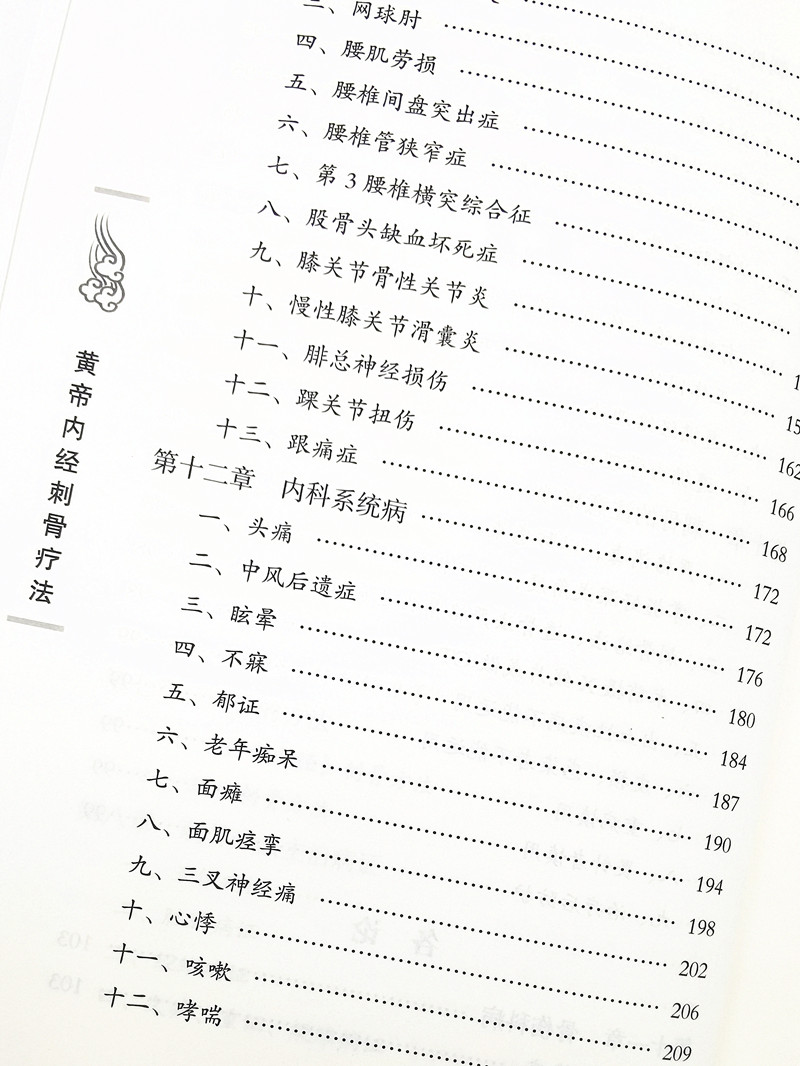 、网球肘
四、腰肌劳损
五、腰椎间盘突出症
六、腰椎管狭窄症
七、第3腰椎横突综合征
八、股骨头缺血坏死症
九、膝关节骨性关节炎
十、慢性膝关节滑囊炎
十一、腓总神经损伤 162
十二、踝关节扭伤 166
十三、跟痛症 168
第十二章 内科系统病 172
一、头痛 172
二、中风后遗症 176
三、眩晕 180
四、不寐 184
五、郁证 187
六、老年痴呆 190
七、面瘫 194
八、面肌痉挛 198
九、三叉神经痛 202
十、心悸 206
十一、咳嗽 209
十二、哮喘
黄帝内经刺骨疗法